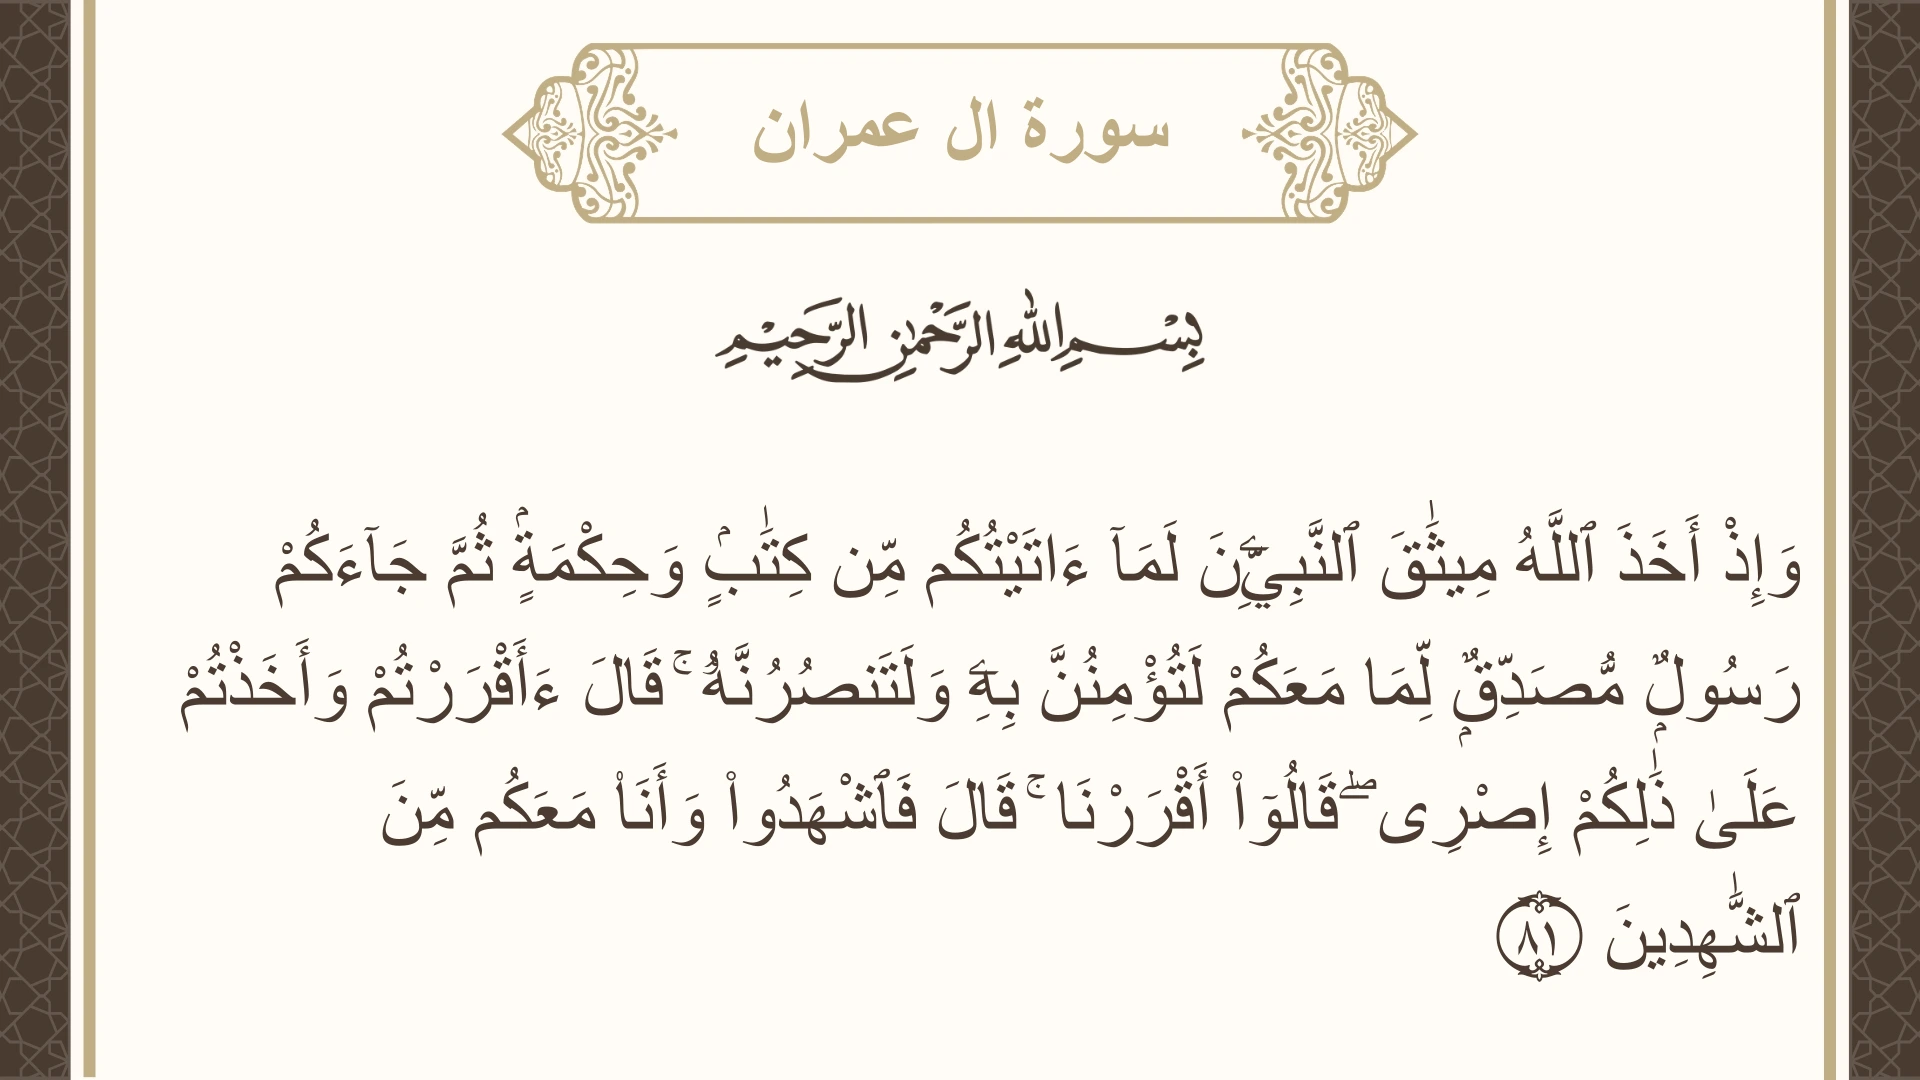 سورة ال عمران
بِسْمِ اللهِ الرَّحْمٰنِ الرَّحِيْمِ
وَإِذْ أَخَذَ ٱللَّهُ مِيثَٰقَ ٱلنَّبِيِّۦنَ لَمَآ ءَاتَيْتُكُم مِّن كِتَٰبٍۢ وَحِكْمَةٍۢ ثُمَّ جَآءَكُمْ
رَسُولٌۭ مُّصَدِّقٌۭ لِّمَا مَعَكُمْ لَتُؤْمِنُنَّ بِهِۦ وَلَتَنصُرُنَّهُۥ ۚ قَالَ ءَأَقْرَرْتُمْ وَأَخَذْتُمْ
عَلَىٰ ذَٰلِكُمْ إِصْرِى ۖ قَالُوٓا۟ أَقْرَرْنَا ۚ قَالَ فَٱشْهَدُوا۟ وَأَنَا۠ مَعَكُم مِّنَ
ٱلشَّٰهِدِينَ ٨١